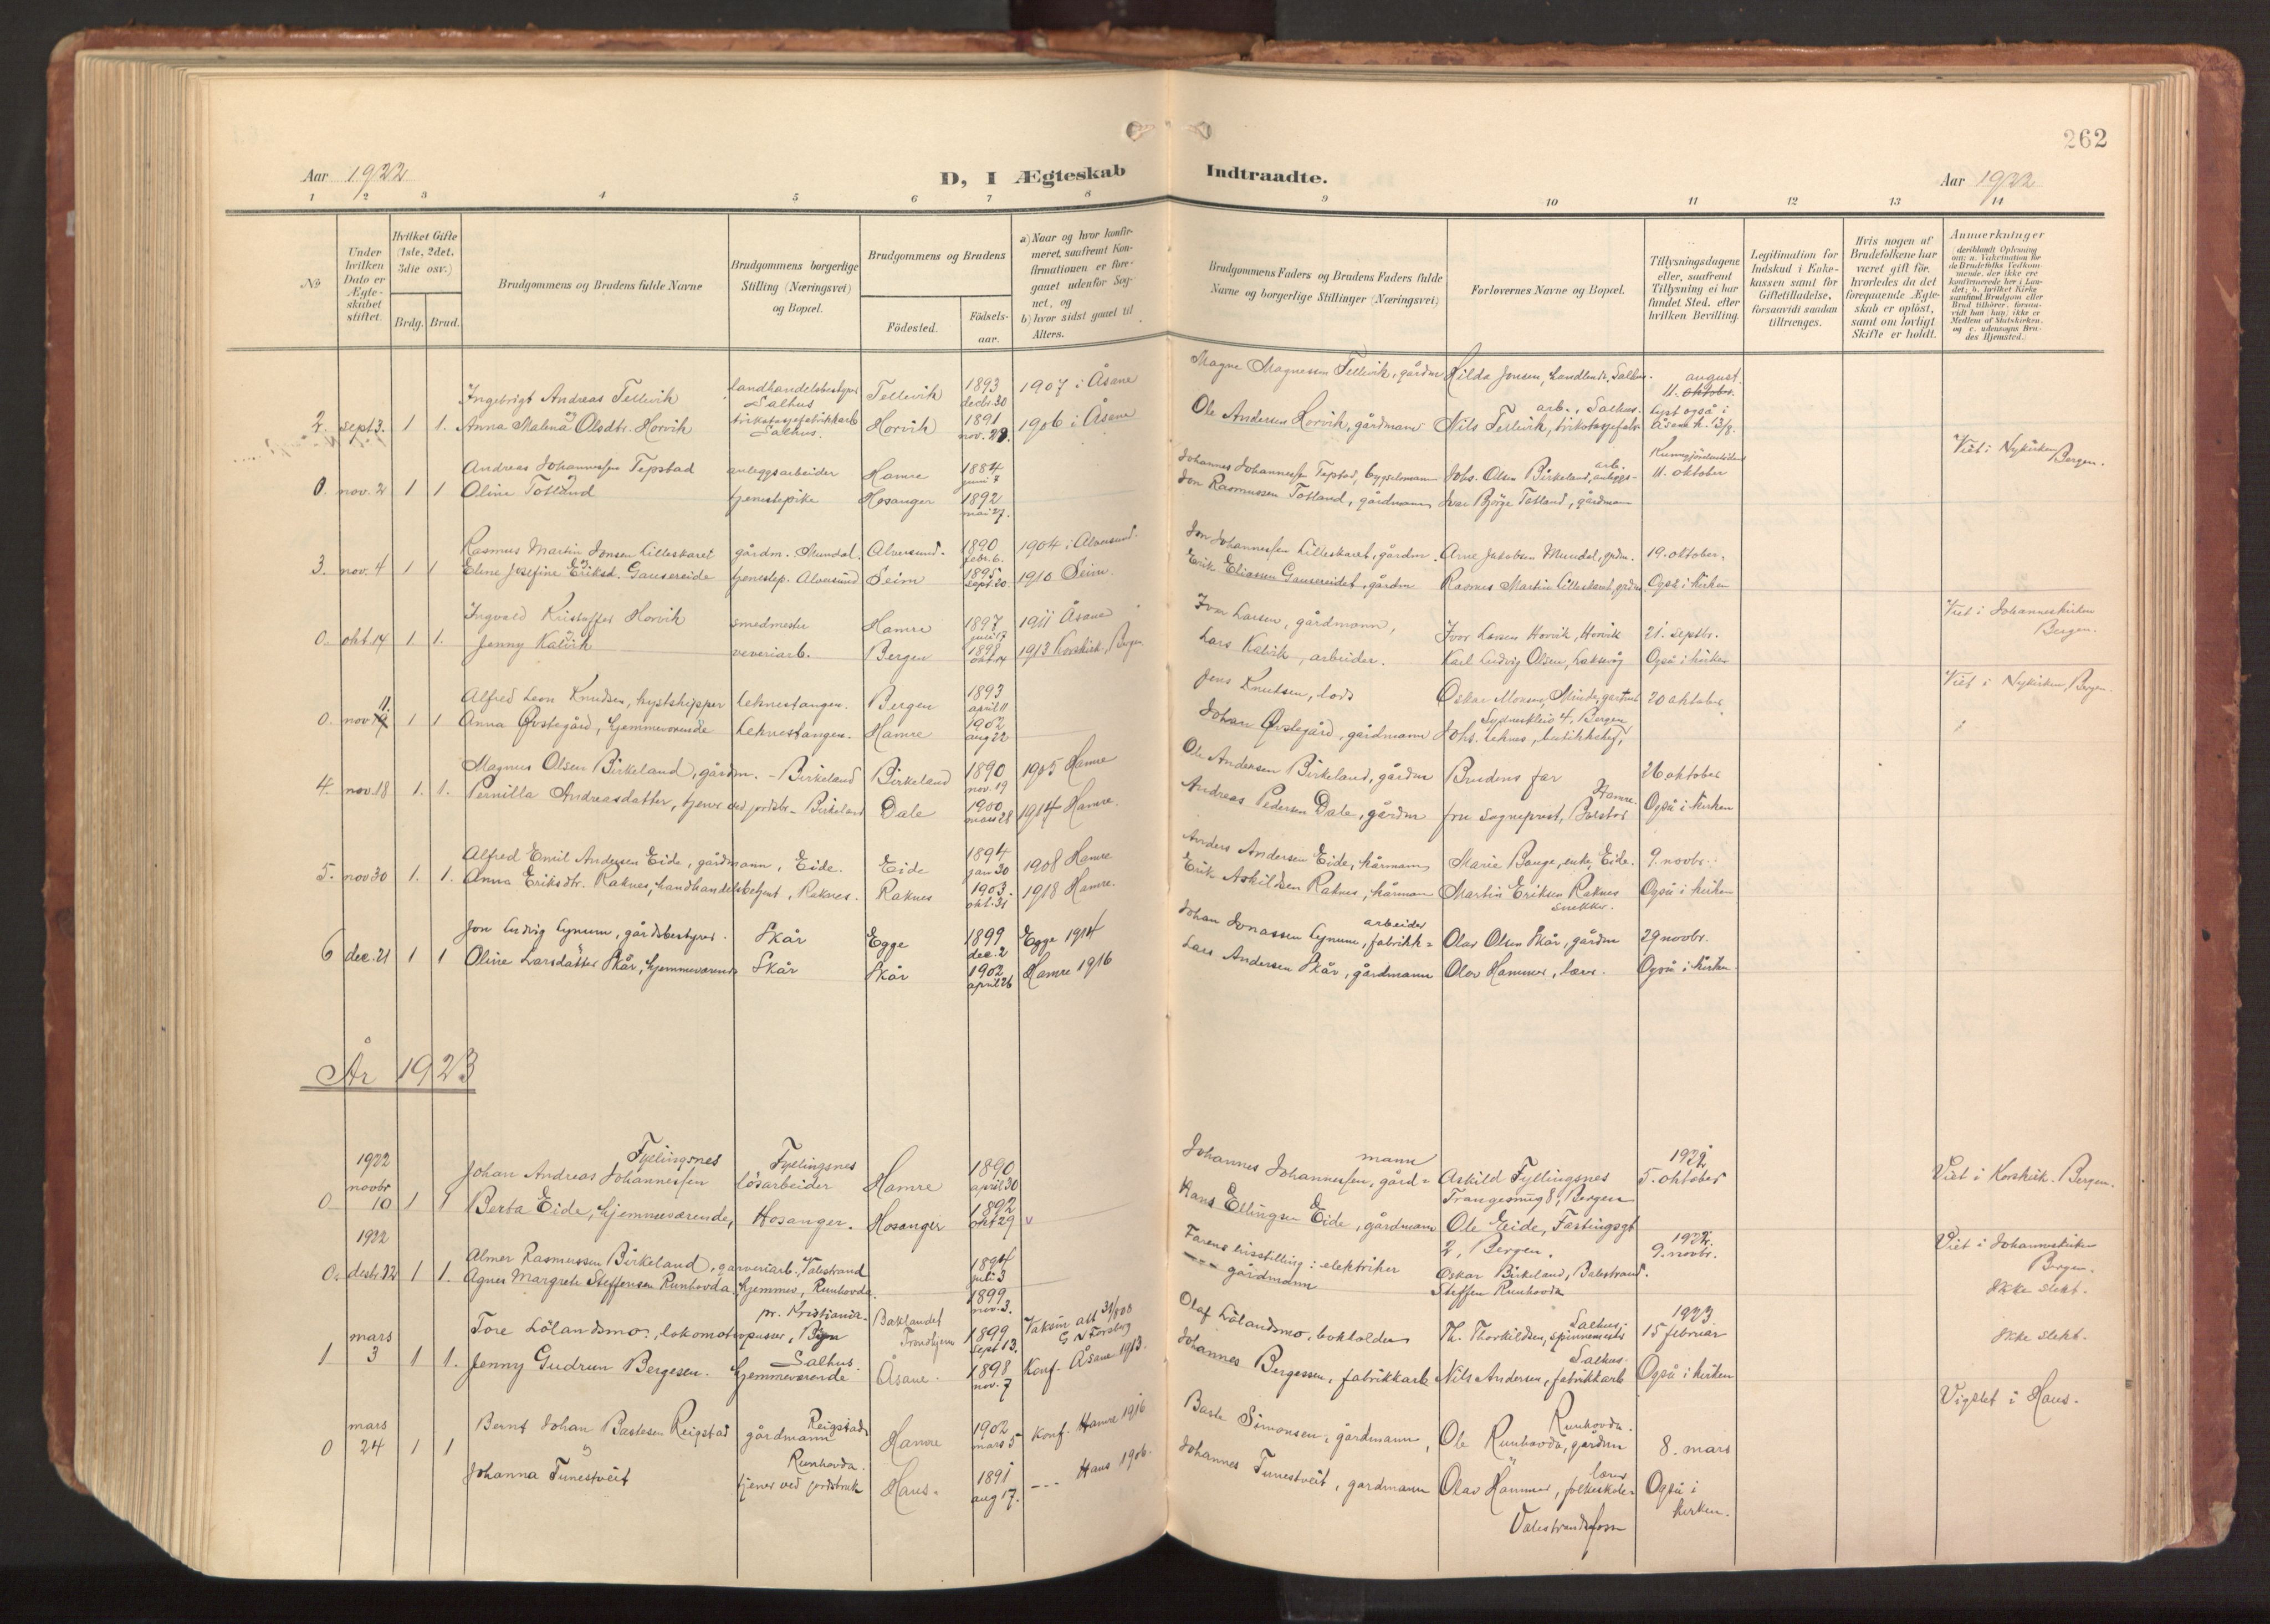 262
Aar 1922
D, I Ægteskab Indtraadte.
Aar 1922
1 2 3 4 5 6 7 8 9 10 11 12 13 14
No
Under hvilken Dato er Ægteskabet stiftet.
Hvilket Gifte (1ste, 2det, 3die osv.)
Brdg. Brud.
Brudgommens og Brudens fulde Navne
Brudgommens borgerlige Stilling (Næringsvei) og Bopæl.
Brudgommens og Brudens
Födested.
Födsels-aar.
a) Naar og hvor konfirmeret, saafremt Konfirmationen er foregaaet udenfor Sognet, og
b) hvor sidst gaaet til Alters.
Brudgommens Faders og Brudens Faders fulde Navne og borgerlige Stillinger (Næringsvei)
Forlovernes Navne og Bopæl.
Tillysningsdagene eller, saafremt Tillysning ei har fundet Sted, efter hvilken Bevilling.
Legitimation for Indskud i Enkekassen samt for Giftetilladelse, forsaavidt saadan tiltrænges.
Hvis nogen af Brudefolkene har været gift før, hvorledes da det foregaaende Ægteskab er oplöst, samt om lovligt Skifte er holdt.
Anmerkninger
(deriblandt Oplysning om: a. Vakcination for de Brudefolks Vedkommende, der ikke ere konfirmerede her i Landet; b. hvilket Kirkesamfund Brudgom eller Brud tilhörer, forsaavidt han (hun) ikke er Medlem af Statskirken, og c. udensogns Brudes Hjemsted.)
Ingebrigt Andreas Tellevik landhandelsbestyrer Salhus Tellevik 1893 decbr. 30 1907 i Åsane Magne Magnessen Tellevik, gårdm Hilda Jensen, Landhandl. Salhus. august 11. oktober.
2. sept 3. 1 1. Anna Malena Olsdtr. Horvik trikotagefabrikkarb Salhus. Horvik 1891 nov. 28. 1906 i Åsane Ole Andersen Horvik, gårdmann Nils Tellevik, trikotagefabr. arb., Salhus. Lyst også i Åsane k. 13/8.
Andreas Johannessen Tepstad anleggsarbeider Hamre 1884 juni 7 Johannes Johannessen Tepstad, bygselmann Johs. Olsen Birkeland, anleggs-arb. 11. oktober Viet i Nykirken, Bergen.
0. nov. 2 1 1 Oline Totland tjenestepike Hosanger 1892 mai 27. Jon Rasmussen Totland, gårdmann Ivar Björge Totland, gårdmann
Rasmus Martin Jonsen Lilleskaret gårdm. Mundal. Alversund. 1890 febr. 6. 1904 i Alversund. Jon Johannessen Lilleskaret, gårdm. Arne Jakobsen Mundal, grdm. 19. oktober.
3. nov. 4 1 1 Eline Josefine Eriksd. Gausereide tjenestep. Alversund Seim 1895 sept. 20. 1910 Seim. Erik Eliassen Gausereidet, gårdm Rasmus Martin Lilleskaret, grdm. Også i kirken
Ingvald Kristoffer Horvik smedmester Hamre 1897 juli 17 1911 Åsane Ivar Larsen, gårdmann, Ivar Larsen Horvik, Horvik 21. septbr. Viet i Johanneskirken Bergen.
0. okt. 14 1. 1. Jenny Kalvik veveriarb. Bergen 1898 okt. 14 1913 Korskirk., Bergen Lars Kalvik, arbeider. Karl Ludvig Olsen, Laksevåg Også i kirken
Alfred Leon Knudsen, kystskipper Leknestangen. Bergen 1893 april 11 Jens Knutsen, lods Oskar Monsen, Minde, gartner 20 oktober Viet i Nykirken, Bergen.
0. nov 11. 1 1 Anna Øvstegård, hjemmeværende Leknestangen. Hamre 1902 aug 22 Johan Øvstegård, gårdmann Johs. Leknes, butikkbetj., Sydneskleiv 4, Bergen
Magnus Olsen Birkeland, gårdm. - Birkeland Birkeland 1890 nov. 19 1905 Hamre Ole Andersen Birkeland, gårdm Brudens far 26 oktober
4. nov. 18 1. 1. Pernilla Andreasdatter, tjener ved jordbr. - Birkeland Dale 1900 mars 28 1914 Hamre. Andreas Pedersen Dale, gårdm fru Sogneprest, Hamre. Også i kirken
Alfred Emil Andersen Eide, gårdmann, Eide. Eide 1894 jan 30 1908 Hamre Anders Andersen Eide, kårmann Marie Bauge, enke, Eide. 9. novbr.
5. nov 30 1. 1. Anna Eriksdtr. Raknes, handhandelsbetjent, Raknes. Raknes 1903. okt. 31 1918 Hamre. Erik Askildsen Raknes, kårmann Martin Eriksen Raknes snekker. Også i kirken
Jon Ludvig Lynum, gårdsbestyrer. Skår Egge 1899 dec. 2 Egge 1914 Johan Jonassen Lynum, fabrikk=arbeider Olav Olsen Skår, gårdm 29 novbr.
6 dec. 21 1 1 Oline Larsdatter Skår, hjemmeværende Skår Skår 1902 april 26 Hamre 1916 Lars Andersen Skår, gårdmann Olav Hammer, lærer. Også i kirken
År 1923
1922 novbr Johan Andreas Johannessen Fyllingsnes Fyllingsnes lösarbeider Hamre 1890 april 30 Johannes Johannessen, gård=mann Askild Fyllingsnes 1922 5. oktober Viet i Korskirk. Bergen.
0 10 1 1 Berta Eide, hjemmeværende, Hosanger. Hosanger 1892 okt 29 v Hans Ellingsen Eide, gårdmann Trangesmug 8, Bergen Ole Eide, Fastingsgt 2, Bergen.
1922 Almer Rasmussen Birkeland, garveriarb. Valestrand 1894 juli 3 Farens livsstilling: elektriker 1922. 9. novbr. Viet i Johanneskirken Bergen.
0. desbr. 22 1 1. Agnes Margrete Steffensen Runhovda, hjemmev., Runhovda. 1899 nov. 3. - - - gårdmann Oskar Birkeland, Balestrand. Steffen Runhovda Ikke slekt.
mars Tore Lölandsmo, lokomotivpusser, Byn pr. Kristiania - Baklandet Trondhjem 1899 sept 13. Vaksin att 31/8 08 G N Forsberg Olaf Lölandsmo, bokholder Th. Thorkildsen, spinnemester Salhus; 1923 15 februar Ikke slekt.
1 3 1 1. Jenny Gudrun Bergesen. Salhus. hjemmeværende Åsane. 1898 nov. 7 Konf. Åsane 1913. Johannes Bergessen, fabrikkarb. Nils Andersen, fabrikkarb Salhus. Også i kirken
mars Bernt Johan Bastesen Reigstad gårdmann Reigstad Hamre 1902 mars 5 Konf. Hamre 1916 Baste Simonsen, gårdmann, Ole Runhovda, gårdm Runhovda. 8. mars Vigslet i Haus.
0 24 1 1 Johanna Tunestveit Runhovda. tjener ved jordbruk Haus. 1891 aug 17. - - - Haus 1906. Johannes Tunestveit, gardmann Olav Hammer, folkeskole=lærer Valestrandsfossen Også i kirken.